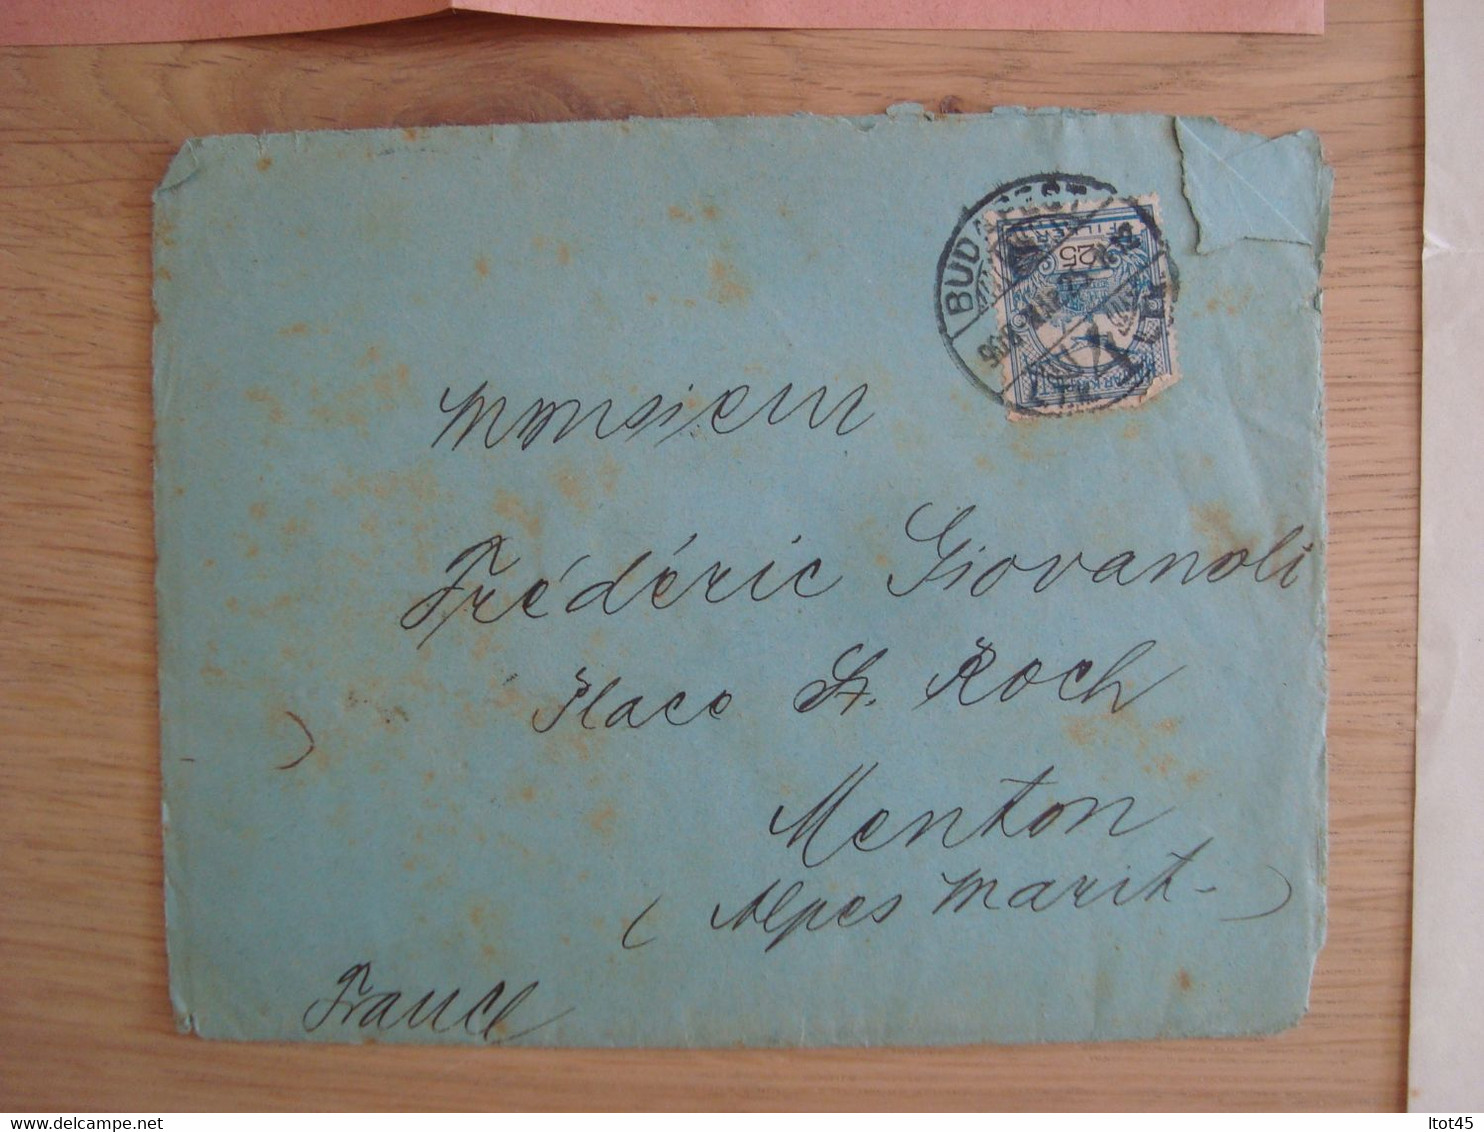 BUDAPEST
25
FILLÉR
Monsieur
Frédéric Giovanoli
Place St. Roch
Menton
(Alpes Marit-)
France
delcampe.net
ltot45